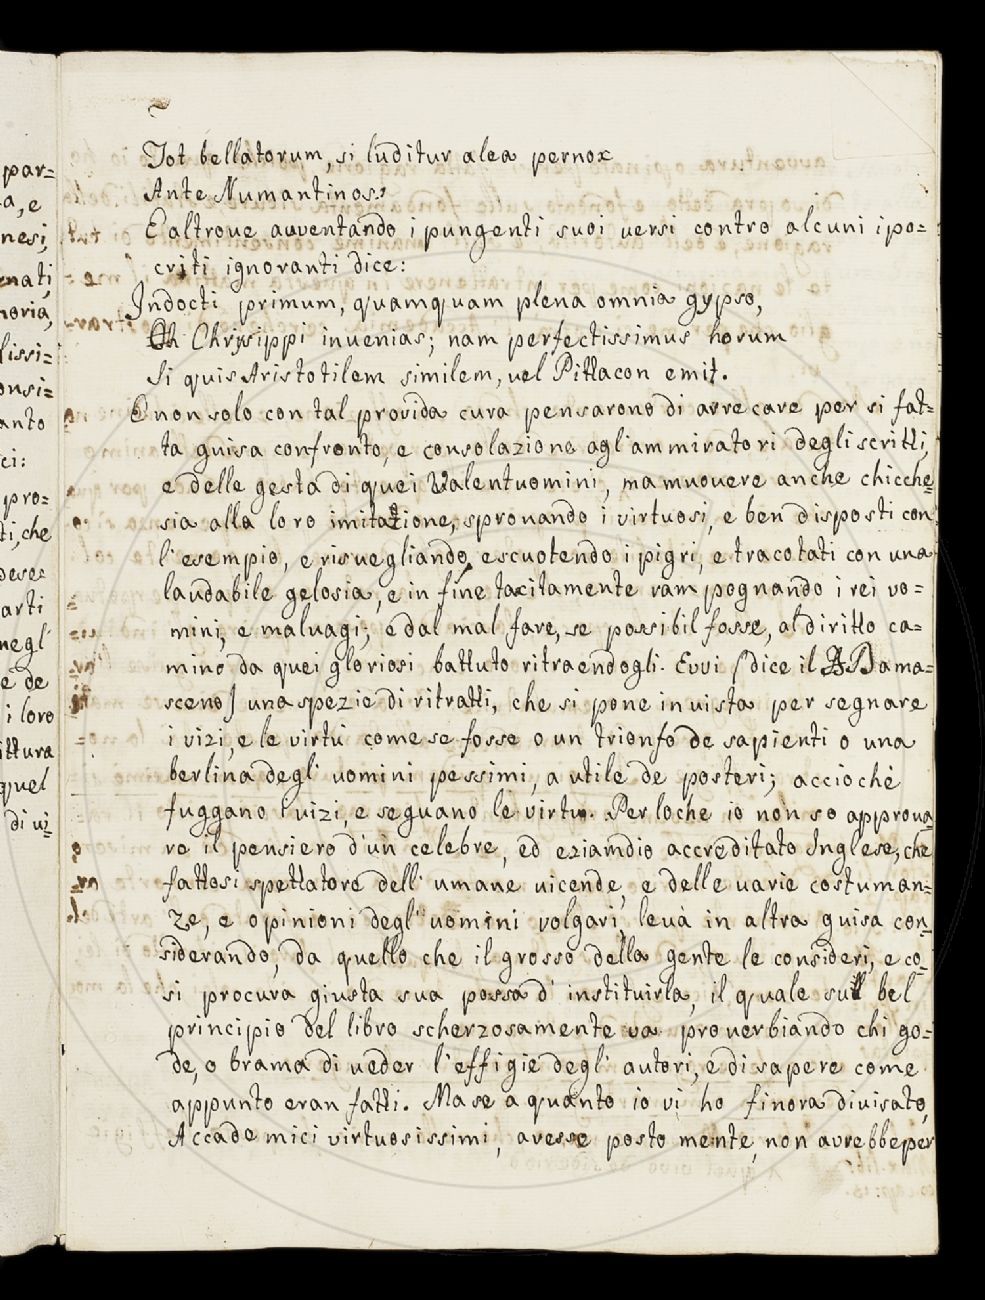 Tot bellatorum, si luditur alea pernox
Ante Numantinos?
E altroue auuentando i pungenti suoi uersi contro alcuni ipo=
criti ignoranti dice:
Indocti primum, quamquam plena omnia gypso,
Chrysippi inuenias; nam perfectissimus horum
Si quis Aristotilem similem, uel Pittacon emit.
E non solo con tal prouida cura pensarono di arrecare per si fat=
ta guisa confronto, e consolazione agl'ammiratori degli scritti,
e delle gesta di quei Valentuomini, ma muouere anche chicche=
sia alla loro imitazione, spronando i virtuosi, e ben disposti con
l'esempio, e risuegliando, e scuotendo i pigri, e tracotati con una
laudabile gelosia, e in fine tacitamente rampognando i rei uo=
mini, e maluagi; e dal mal fare, se possibil fosse, al diritto ca=
mino da quei gloriosi battuto ritraendogli. Euui [dice il Dama=
sceno] una spezie di ritratti, che si pone in uista per segnare
i vizi, e le virtù come se fosse o un trionfo de sapienti o una
berlina degl' uomini pessimi, a utile de posteri; acciochè
fuggano i uizi, e seguano le virtu. Perloche io non so approua=
re il pensiero d'un celebre, ed eziamdio accreditato Inglese, che
fattosi spettatore dell' umane uicende, e delle uarie costuman=
ze, e opinioni degl' uomini volgari, leuà in altra guisa con=
siderando, da quello che il grosso della gente le consideri, e co=
si procura giusta sua possa d' instituirla, il quale sul bel
principio del libro scherzosamente ua prouerbiando chi go=
de, o brama di ueder l'effigie degl' autori, e di sapere come
appunto eran fatti. Ma se a quanto io vi ho finora diuisato,
Accademici virtuosissimi, auesse posto mente, non aurebbe per
par=
a, e
nesi,
enati,
moria,
lissi=
onsi=
anto
ci:
pro=
ti, che
arti
negl'
e de
i loro
ittura
quel
di ui=